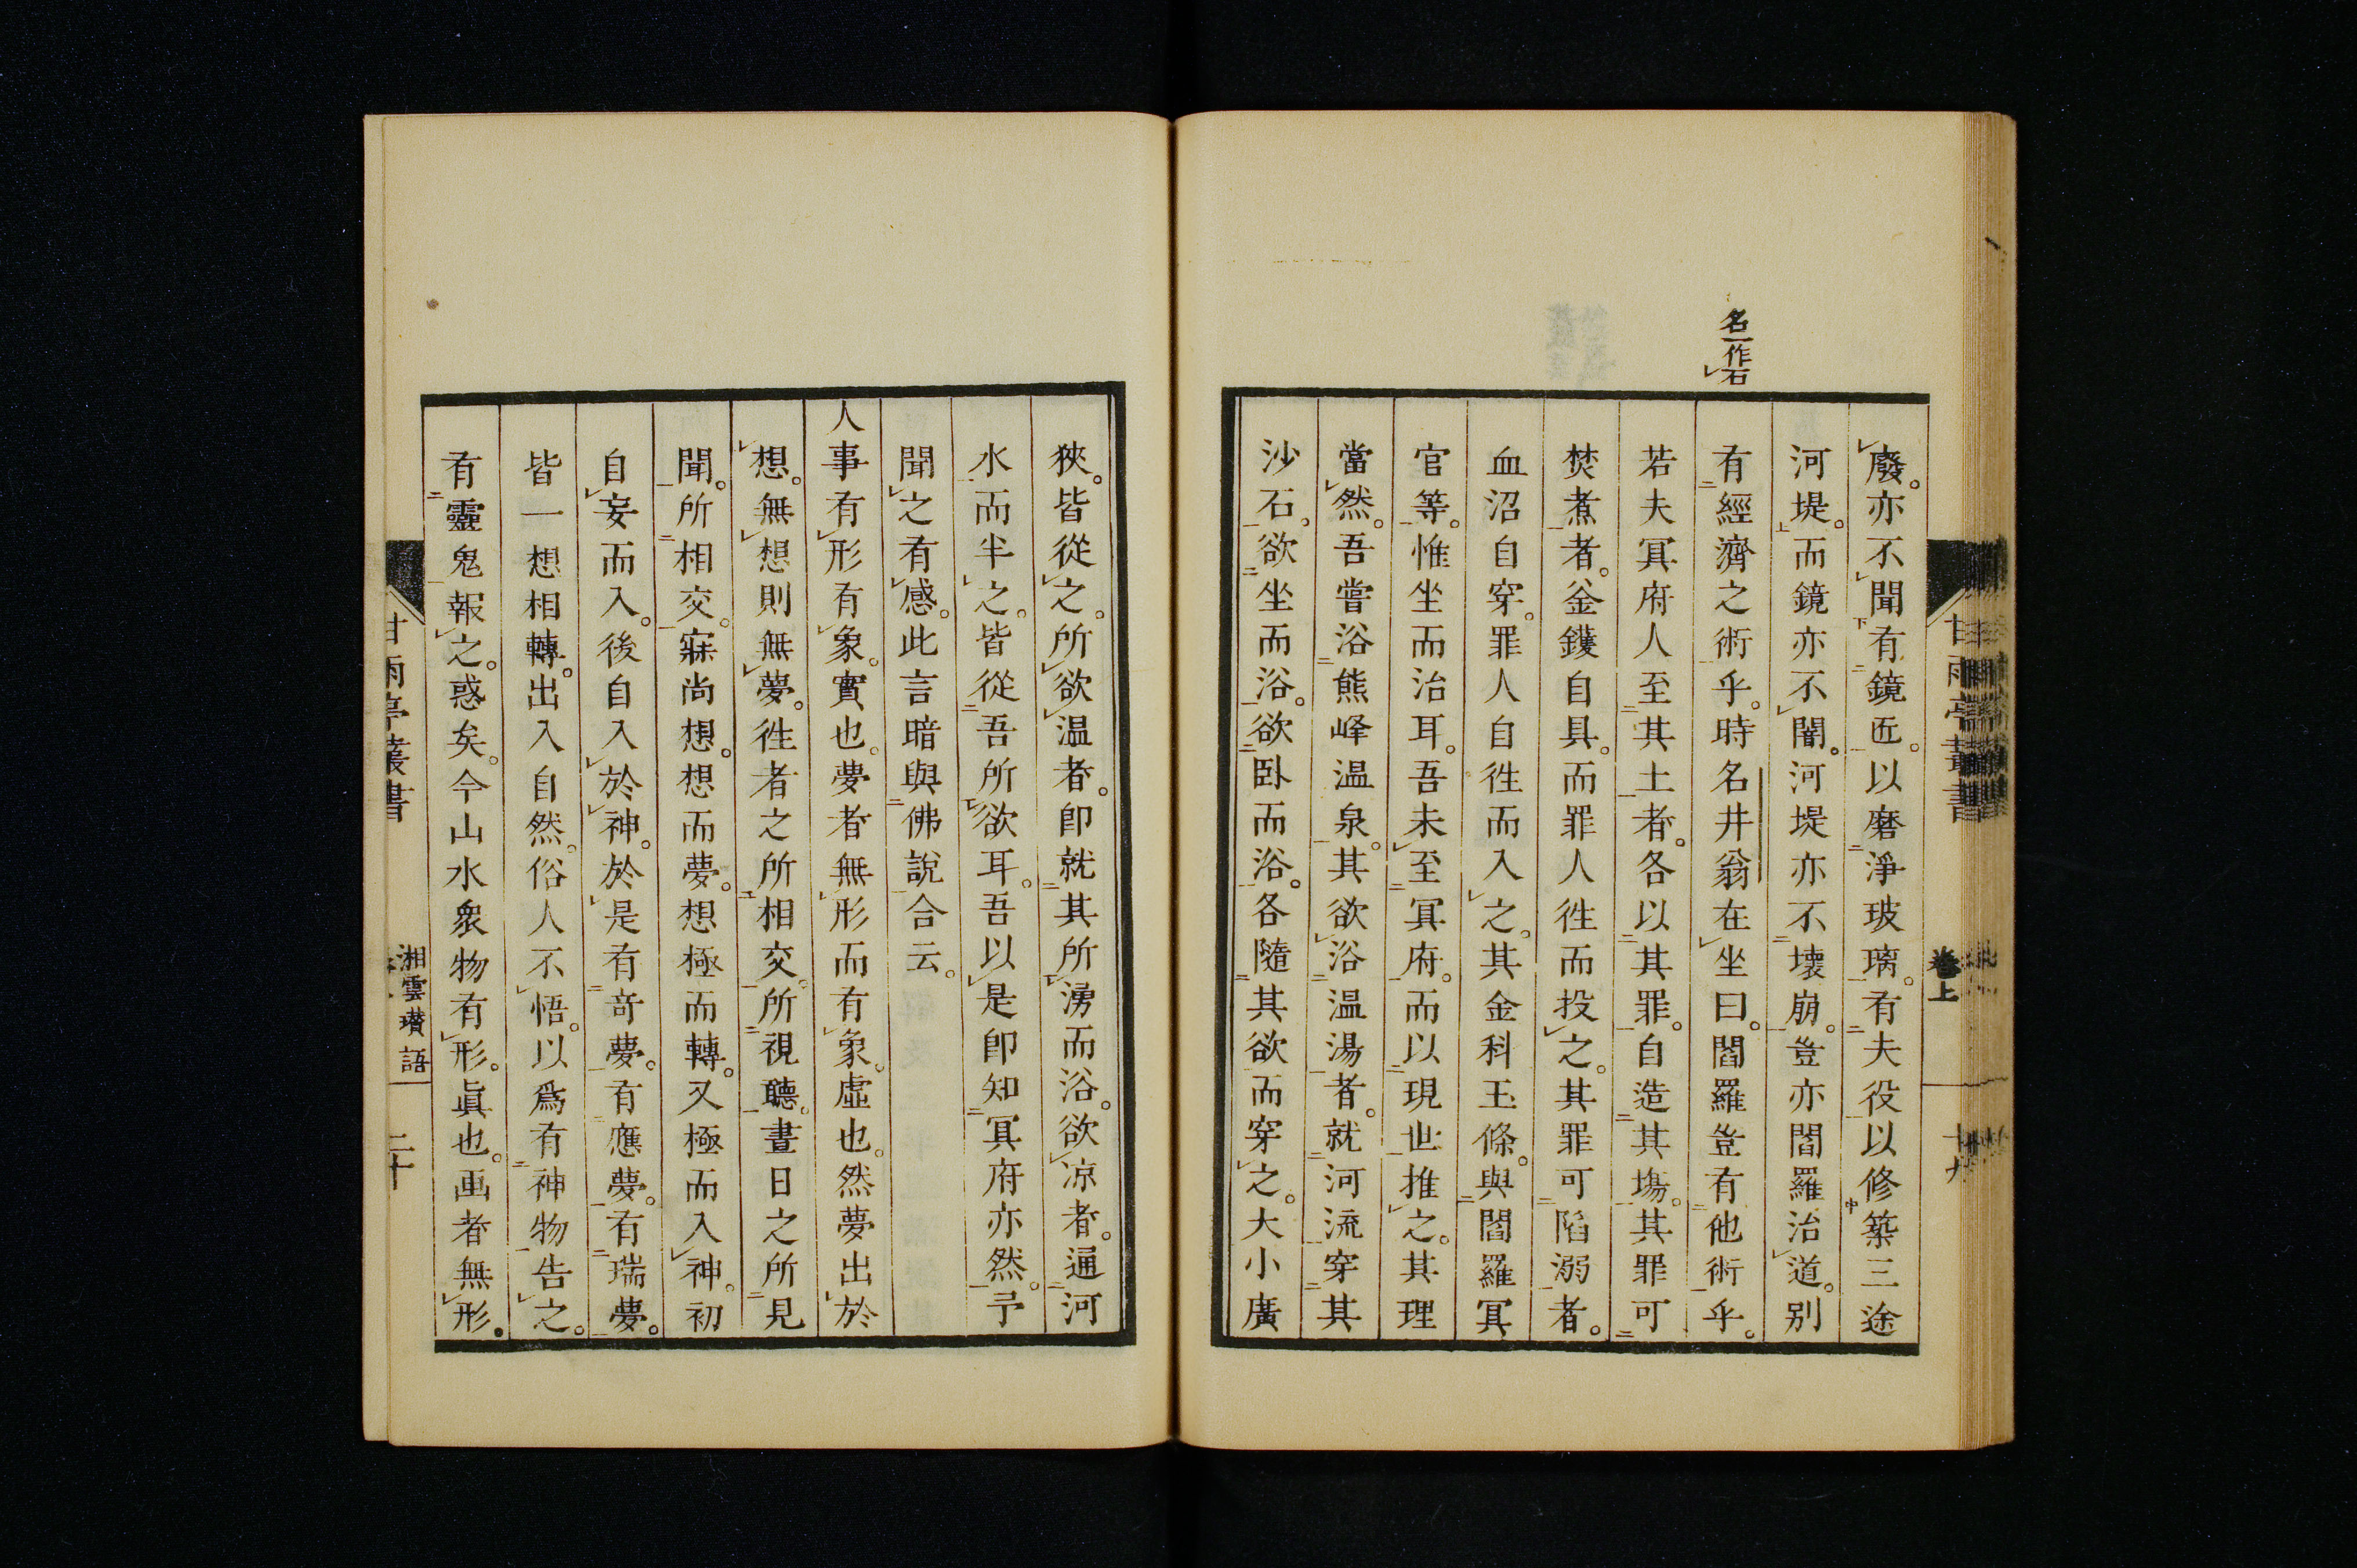 名一作石
廢。亦不聞有鏡匠。以磨淨玻璃。有夫役以修築三途
河堤。而鏡亦不闇。河堤亦不壞崩。豈亦閻羅治道。别
有經濟之術乎。時名井翁在坐曰。閻羅豈有他術乎。
若夫冥府人至其土者。各以其罪。自造其場。其罪可
焚煮者。釜鑊自具。而罪人徃而投之。其罪可陷溺者。
血沼自穿。罪人自徃而入之。其金科玉條。與閻羅冥
官等。惟坐而治耳。吾未至冥府。而以現世推之。其理
當然。吾嘗浴熊峰温泉。其欲浴温湯者。就河流穿其
沙石。欲坐而浴。欲卧而浴。各隨其欲而穿之。大小廣
甘雨亭叢書
卷上
十九
狹。皆從之。所欲温者。卽就其所湧而浴。欲凉者。通河
水而半之。皆從吾所欲耳。吾以是卽知冥府亦然。予
聞之有感。此言暗與佛說合云。
人事有形有象。實也。夢者無形而有象。虛也。然夢出於
想。無想則無夢。徃者之所相交。所視聽。晝日之所見
聞。所相交。寐尚想。想而夢。想極而轉。又極而入神。初
自妄而入。後自入於神。於是有奇夢。有應夢。有瑞夢。
皆一想相轉。出入自然。俗人不悟。以爲有神物告之。
有靈鬼報之。惑矣。今山水衆物有形。眞也。画者無形。
甘雨亭叢書
湘雲瓚語
二十